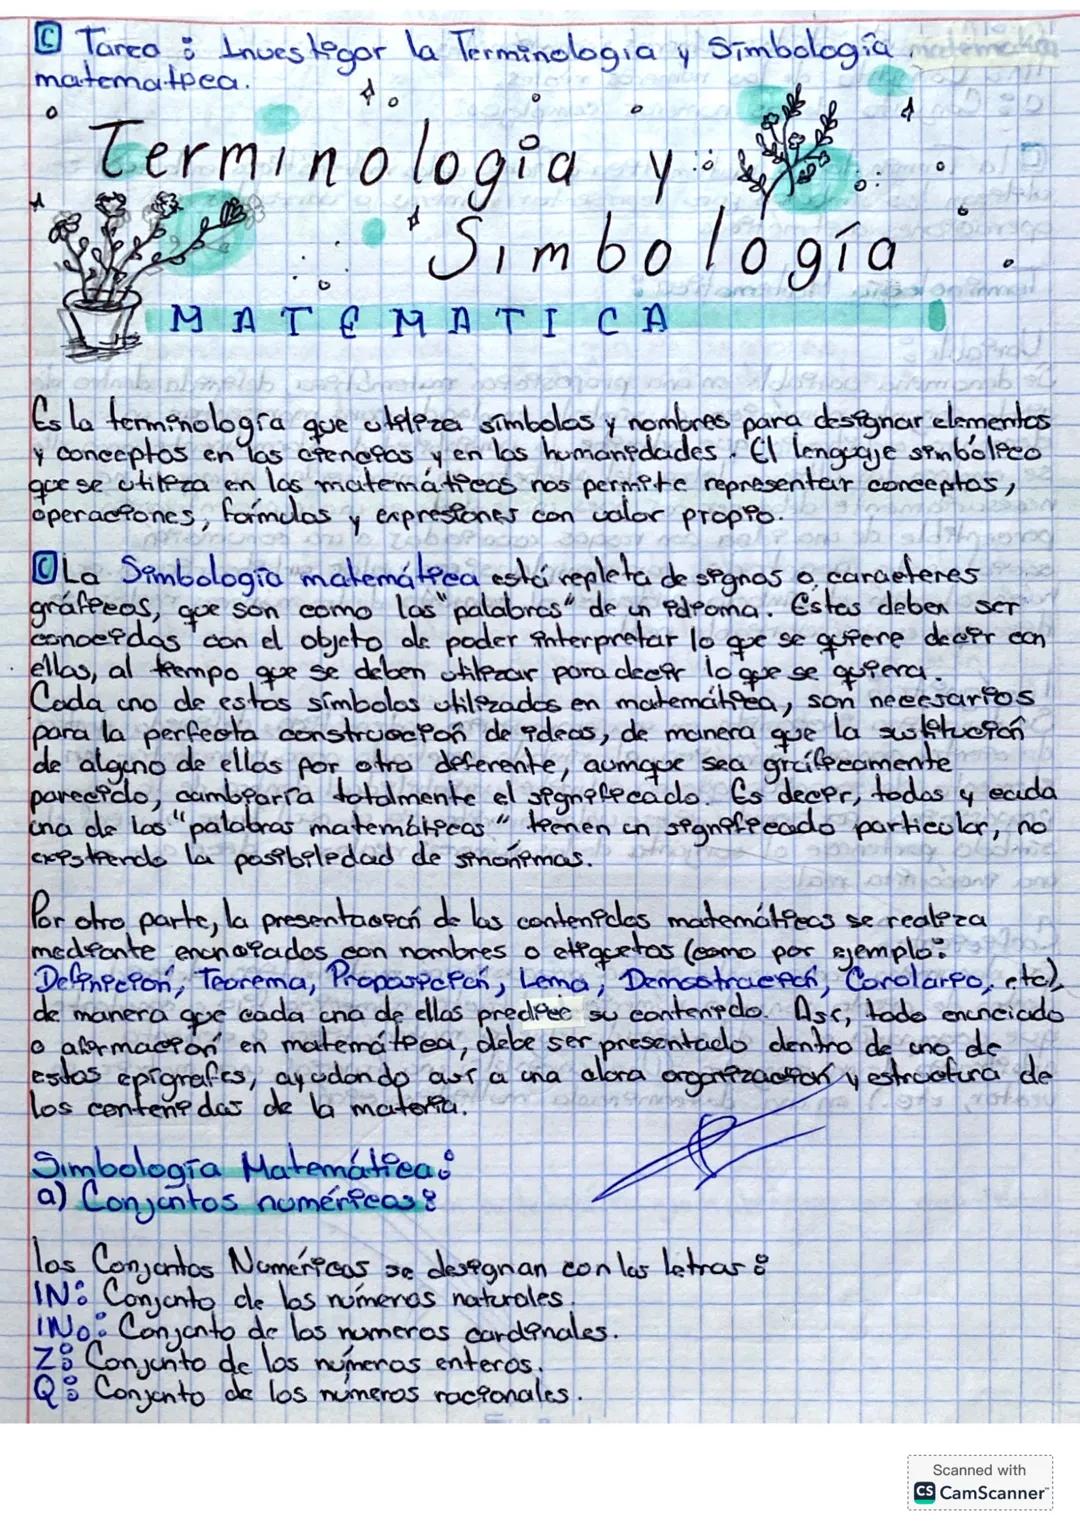 C Tarea : Investigar la Terminologia y Simbología
matematica.
Terminologia y
Simbología
MATEMATICA
Es la terminología que utiliza símbolos y nombres para designar elementos
y conceptos en las ciencias y en las humanidades. El lenguaje simbólico
que se utiliza en las matemáticas nos permite representar conceptos,
operaciones, formulas y expresiones con valor propio.
C La Simbología matemática está repleta de signos o caracteres
gráficos, que son como las "palabras" de un idioma. Estas deben ser
conocidas con el objeto de poder interpretar lo que se quiere decir con
ellas, al tiempo que se deben utilizar para decir lo que se quiera.
Cada uno de estos símbolos utilizados en matemática, son necesarios
para la perfecta construcción de ideas, de manera que la sustitución
de alguno de ellos por otro deferente, aumque sea gráficamente
parecido, cambiaría totalmente el significado. Es decir, todas y cada
una de las "palabras matemáticas" tienen un significado particular, no
existiendo la posibilidad de sinónimas.
Por otro parte, la presentación de los contenidos matemáticos se realiza
mediante enunciados con nombres o etiquetas (como por ejemplo:
Definición, Teorema, Proposición, Lema, Demostración, Corolario, etc),
de manera que cada una de ellas predice su contenido. Así, todo enunciado
o afirmación en matemática, debe ser presentado dentro de uno de
estos epígrafes, ayudando así a una clara organización y estructura de
los contenidos de la materia.
Simbología Matemática:
a) Conjuntos numéricos:
los Conjuntos Numéricos se designan con las letras:
IN: Conjunto de los números naturales.
INo: Conjunto de los numeros cardinales.
Z: Conjunto de los números enteros.
Q: Conjunto de los números racionales.
Scanned with
CS CamScanner